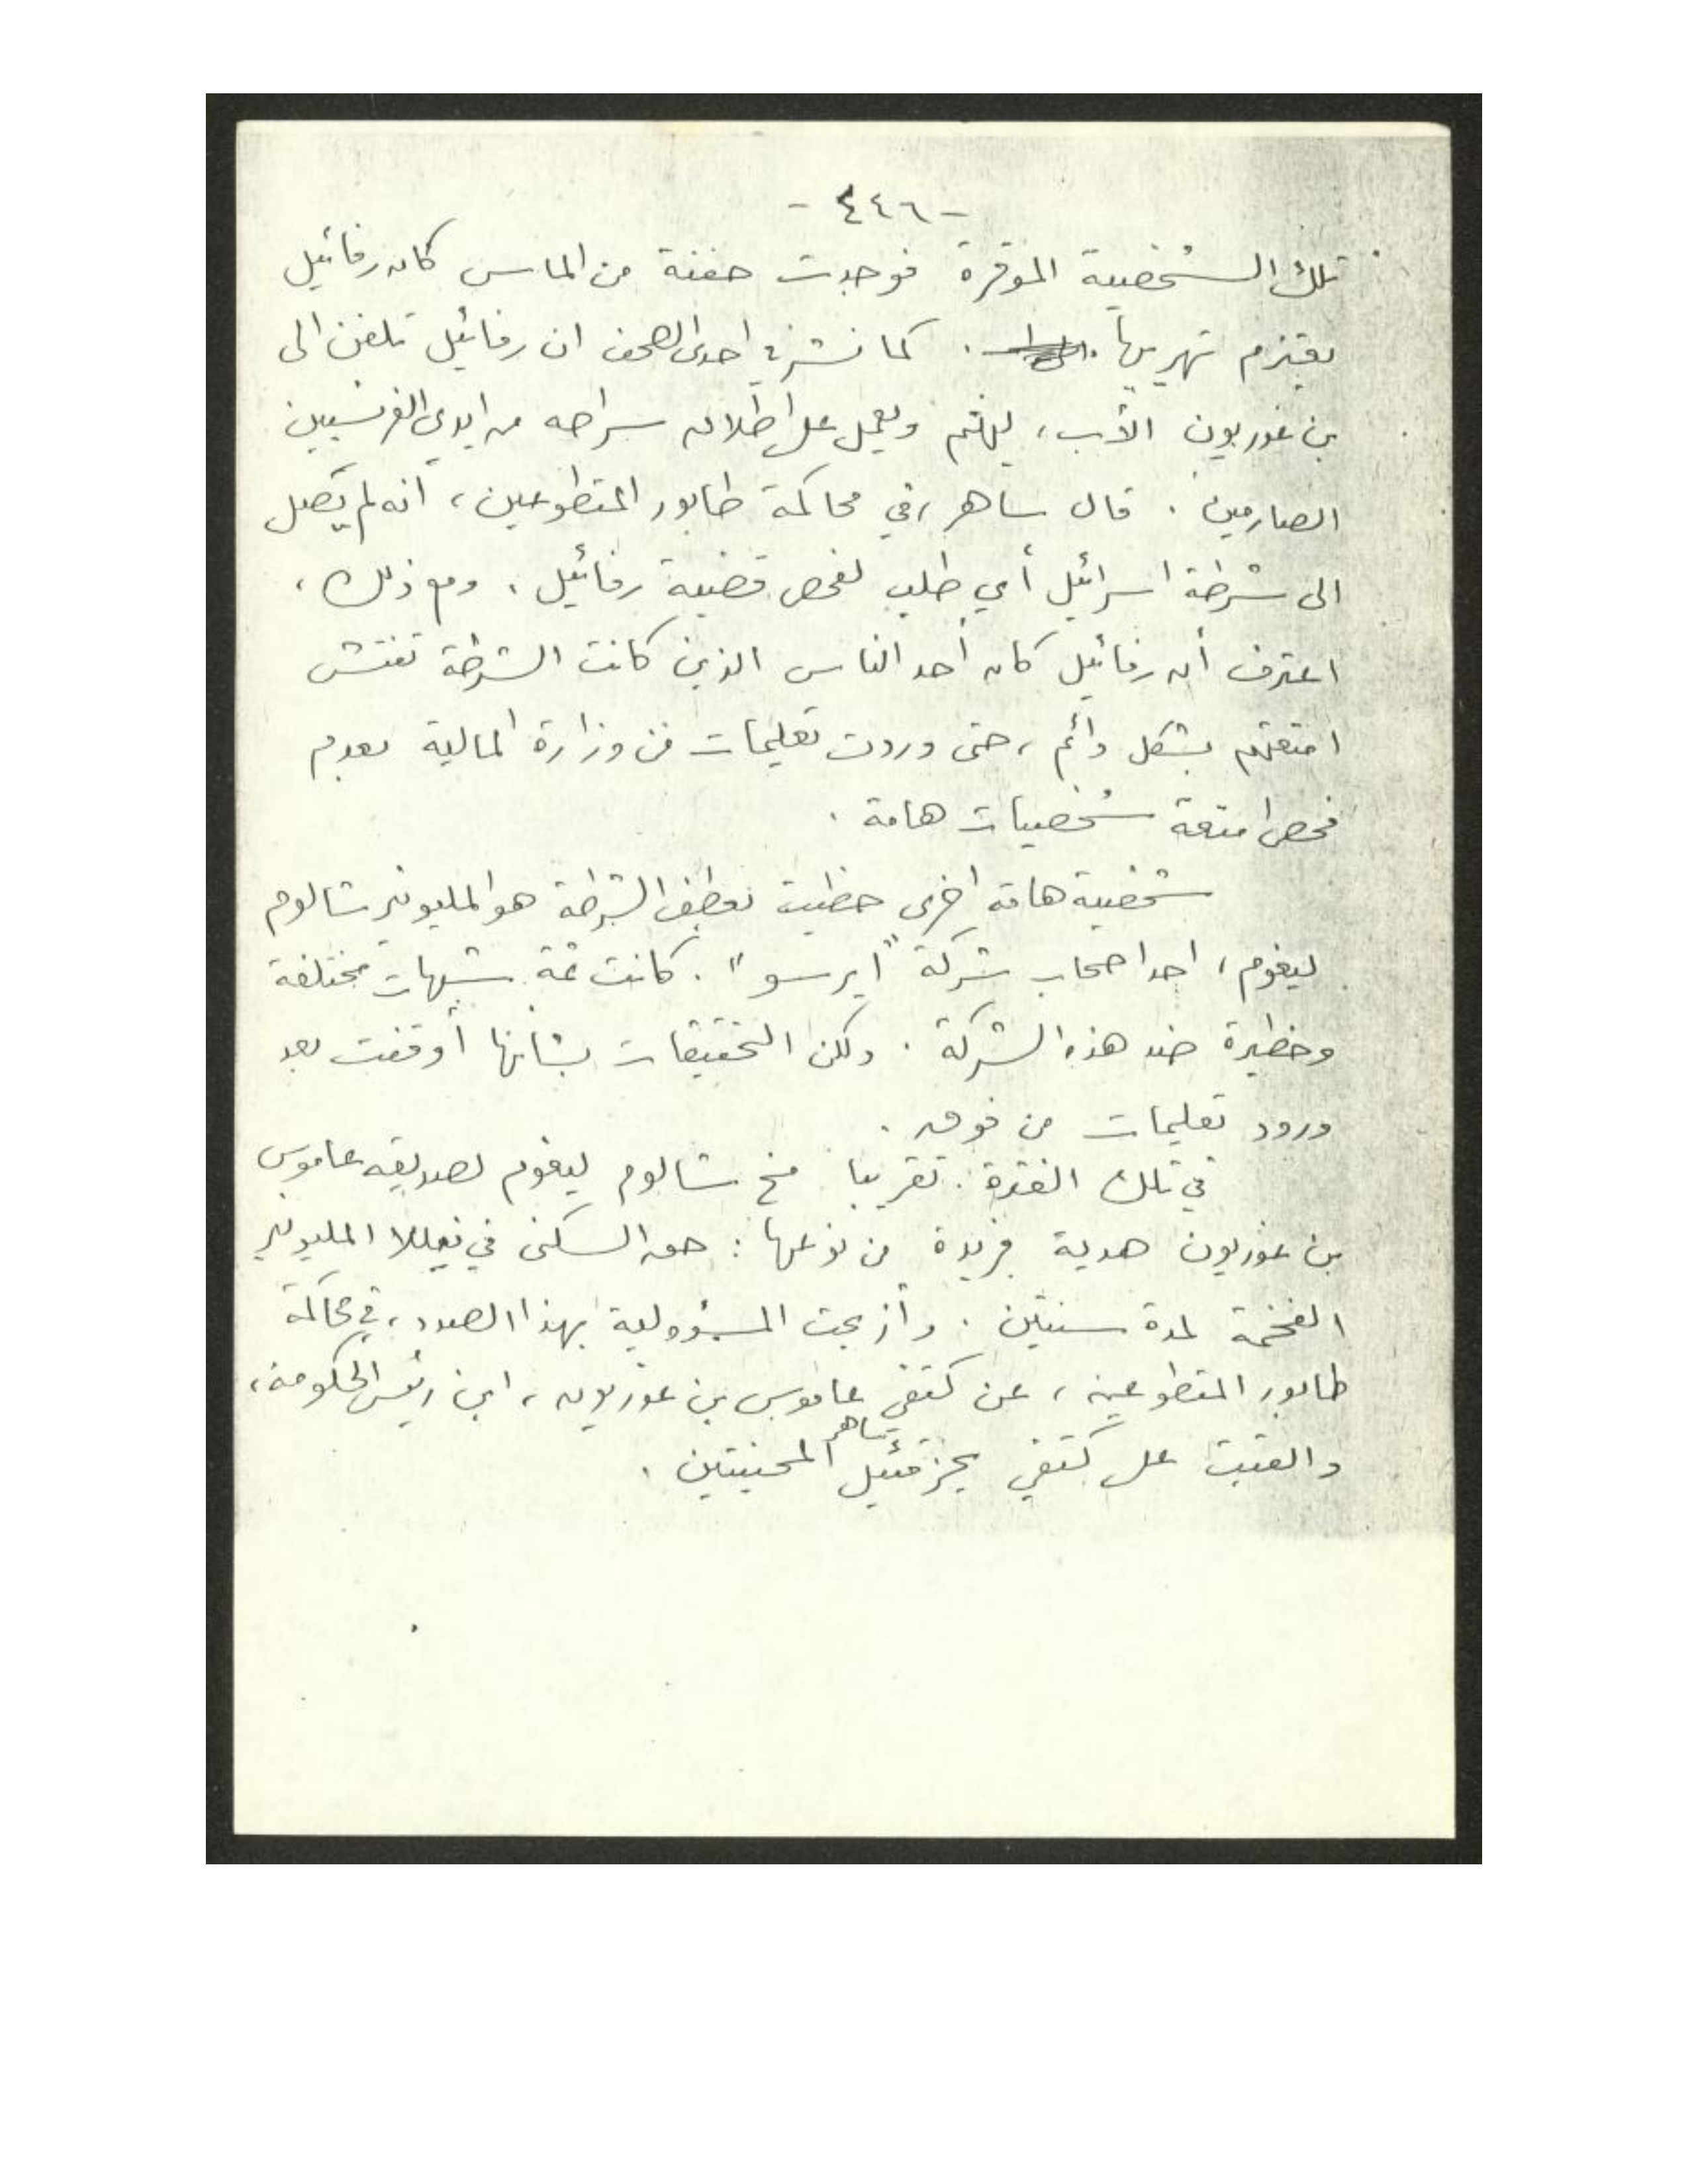 - ٤٤٦ -
تلك الشخصية الموقرة فوجدت حفنة من الماس كان رفائيل
يعتزم تهريبها . كما نشرت احدى الصحف ان رفائيل تلفن الى
بن غوريون الأب، ليهتم ويعمل على اطلاق سراحه من ايدي الفرنسيين
الصارمين . قال ساهر، في محاكمة طابور المتطوعين، انه لم يصل
الى شرطة اسرائيل أي طلب لفحص قضية رفائيل . ومع ذلك،
اعترف أن رفائيل كان أحد الناس الذين كانت الشرطة تفتش
امتعتهم بشكل دائم، حتى وردت تعليمات من وزارة المالية بعدم
فحص امتعة شخصيات هامة .
شخصية هامة اخرى حظيت بعطف الشرطة هو المليونير شالوم
ليفوم، احد اصحاب شركة "ايرسو" . كانت ثمة شبهات مختلفة
وخطيرة ضد هذه الشركة . ولكن التحقيقات بشأنها أوقفت بعد
ورود تعليمات من فوق .
في تلك الفترة تقريبا منح شالوم ليفوم لصديقه عاموس
بن غوريون هدية فريدة من نوعها : حق السكنى في فيللا المليونير
الفخمة لمدة سنتين . وأزيحت المسؤولية بهذا الصدد، في محاكمة
طابور المتطوعين، عن كتفي عاموس بن غوريون، ابن رئيس الحكومة،
والقيت على كتفي يحزقئيل ساهر المحنيتين .